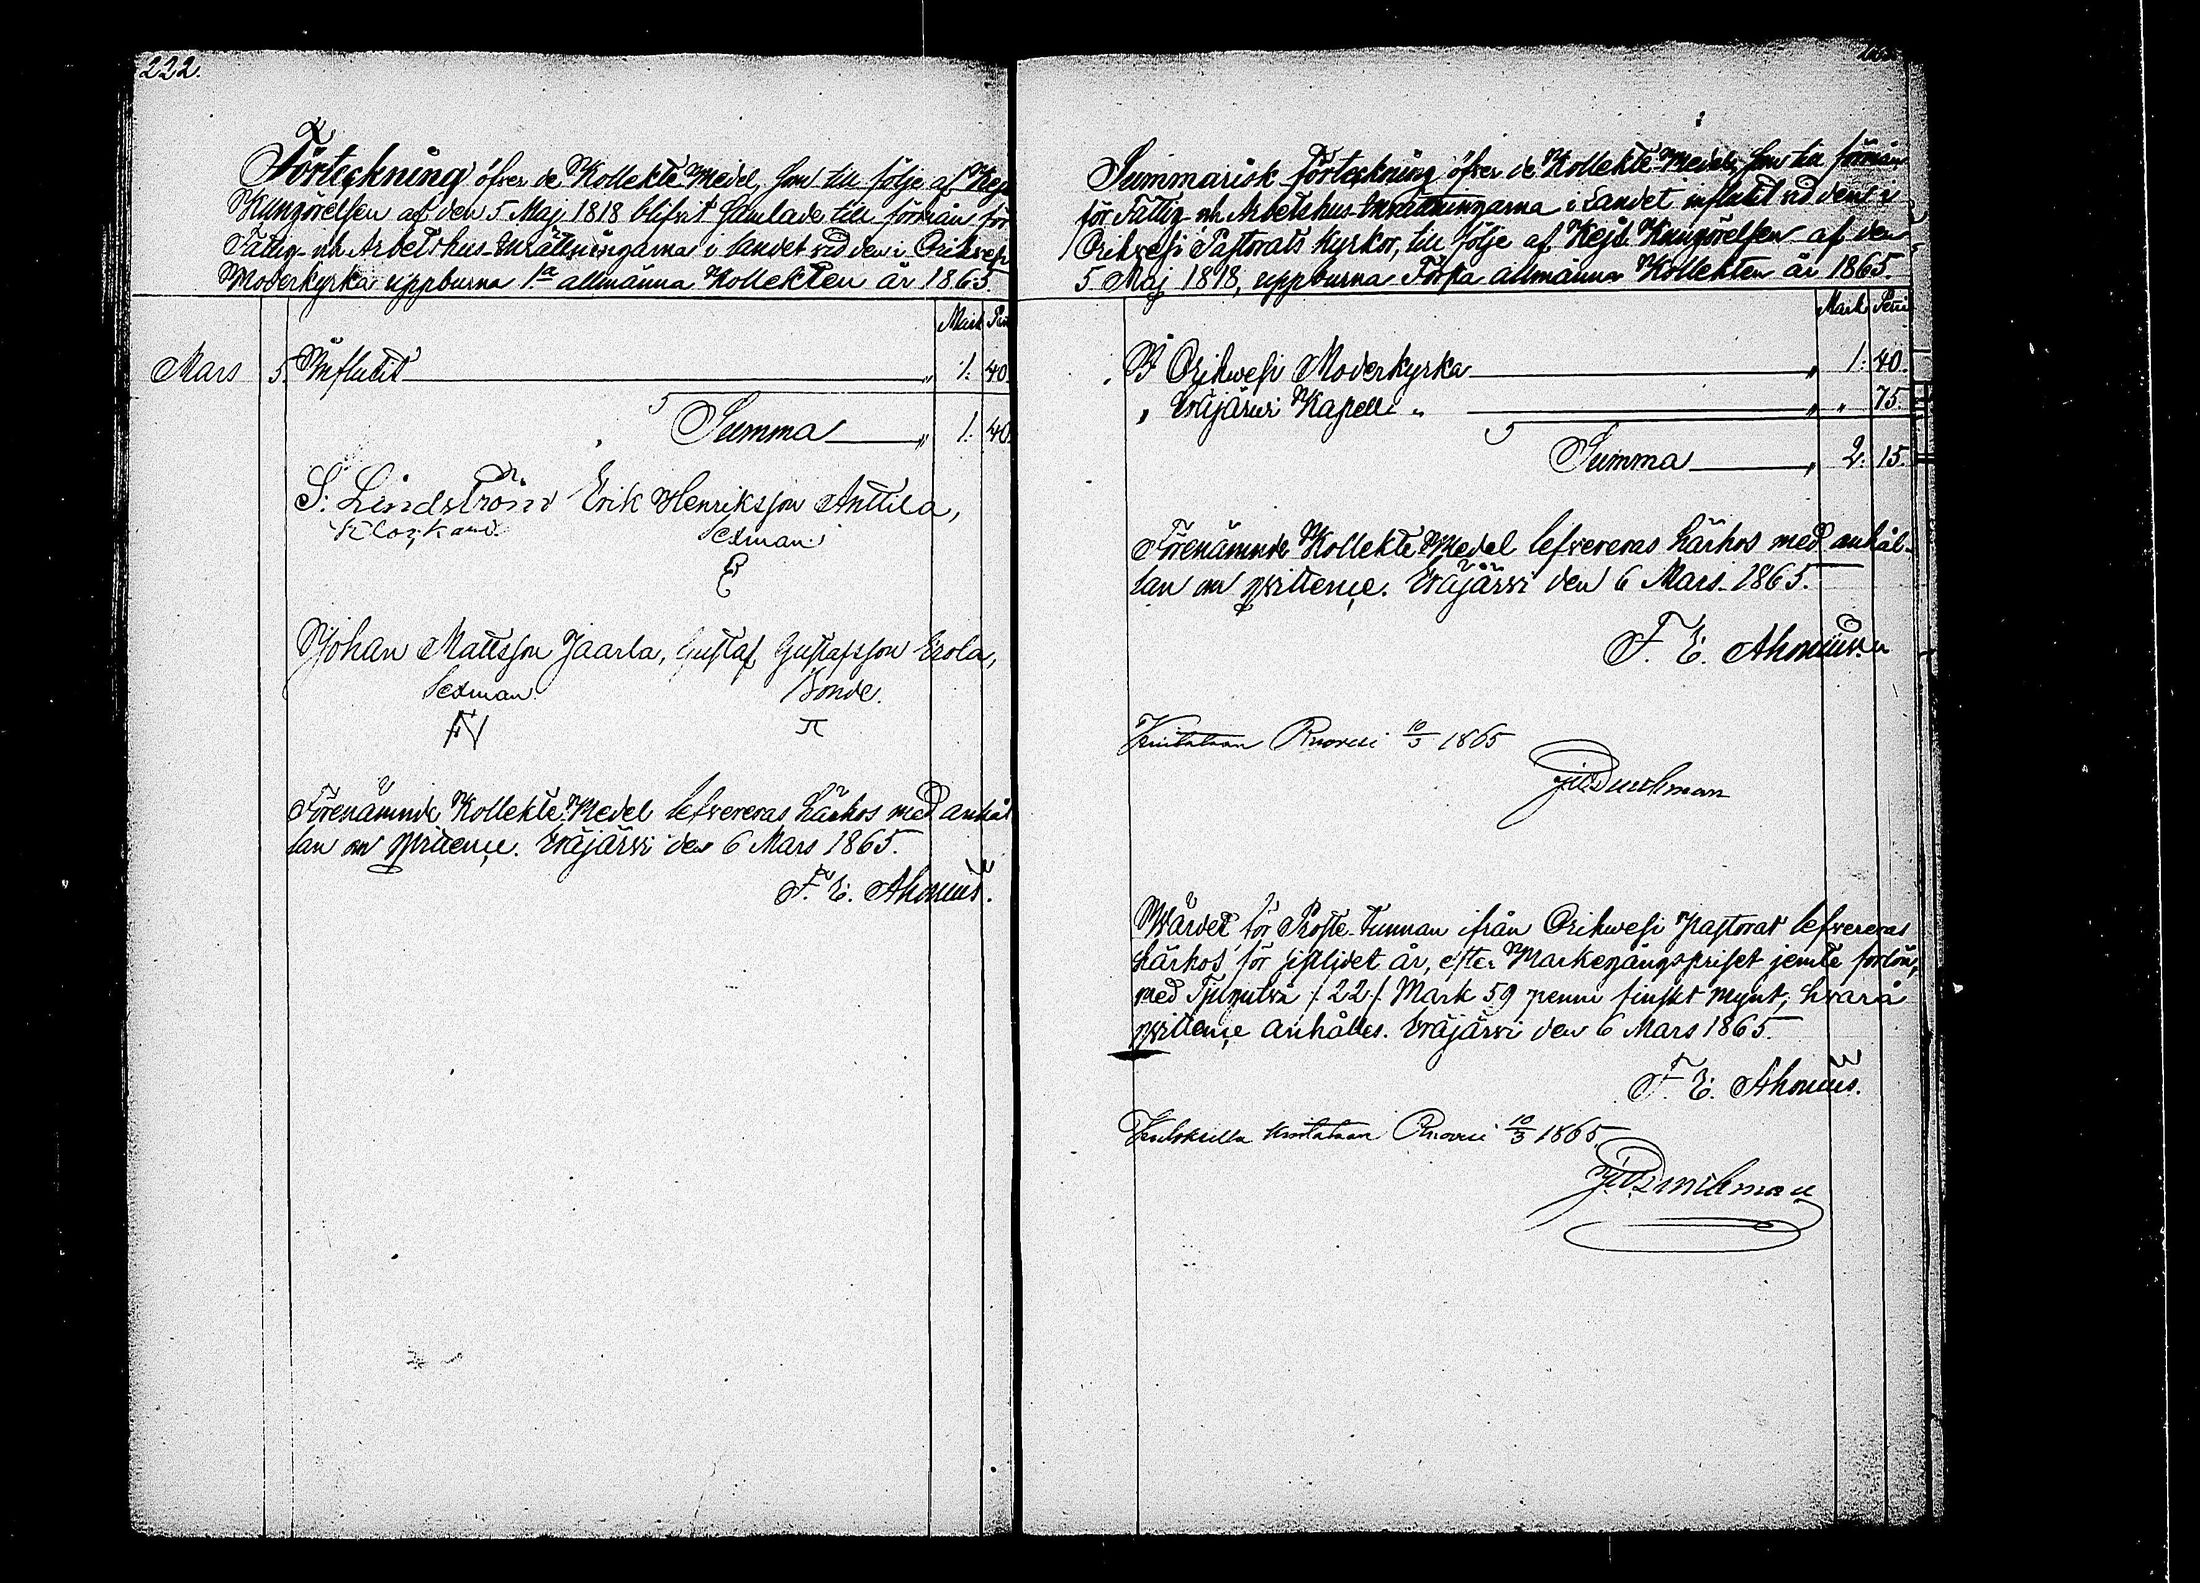 222.
Förteckning öfver de Kollekte-Medel, som till följe af Kejs
Kungörelsen af den 5 Maj 1818 blifvit samlade till förmån för
Fattig- och Arbetshus-Inrättningarna i landet vid den i Orihvesi
Moderkyrka uppburna 1a allmänna Kollekten år 1865.
Mark Pen
Mars 5. Influtit " 1. 40.
Summa " 1. 40.
S. Lindström Erik Henriksson Anttila,
Klockare. Sexman.
Johan Mattsson Jaarla, Gustaf Gustafsson Erola,
Sexman. Bonde.
Förenämnde Kollekte-Medel lefvereras härhos med anhål
lan om qvittence. Eräjärvi den 6 Mars 1865.
F. E. Ahonius.
Summarisk förteckning öfver de Kollekte-Medel, som till förmån
för Fattig- och Arbetshus-Inrättningarna i Landet influtit vid den i
Orihvesi Pastorats kyrkor, till följe af Kejs. Kungörelsen af den
5 Maj 1818, uppburna Första allmänna Kollekten år 1865.
Mark Penni
I Orihvesi Moderkyrka " 1. 40.
" Eräjärvi Kapell " " " 75.
Summa " 2. 15.
Förenämnde Kollekte-Medel lefvereras härhos med anhål-
lan om qvittence. Eräjärvi den 6 Mars 1865.
F. E. Ahonius.
Kvitataan Ruovesi 10/3 1865
Värdet för Proste-Tunnan ifrån Orihvesi Pastorat lefvereras
härhos, för sistlidet år, efter Markegångspriset jemte forlön,
med Tjugutvå /22/ Mark 59 penni finskt mynt, hvarå
qvittence anhålles. Eräjärvi den 6 Mars 1865.
F. E. Ahonius.
kvitataan Ruovesi 10/3 1865.